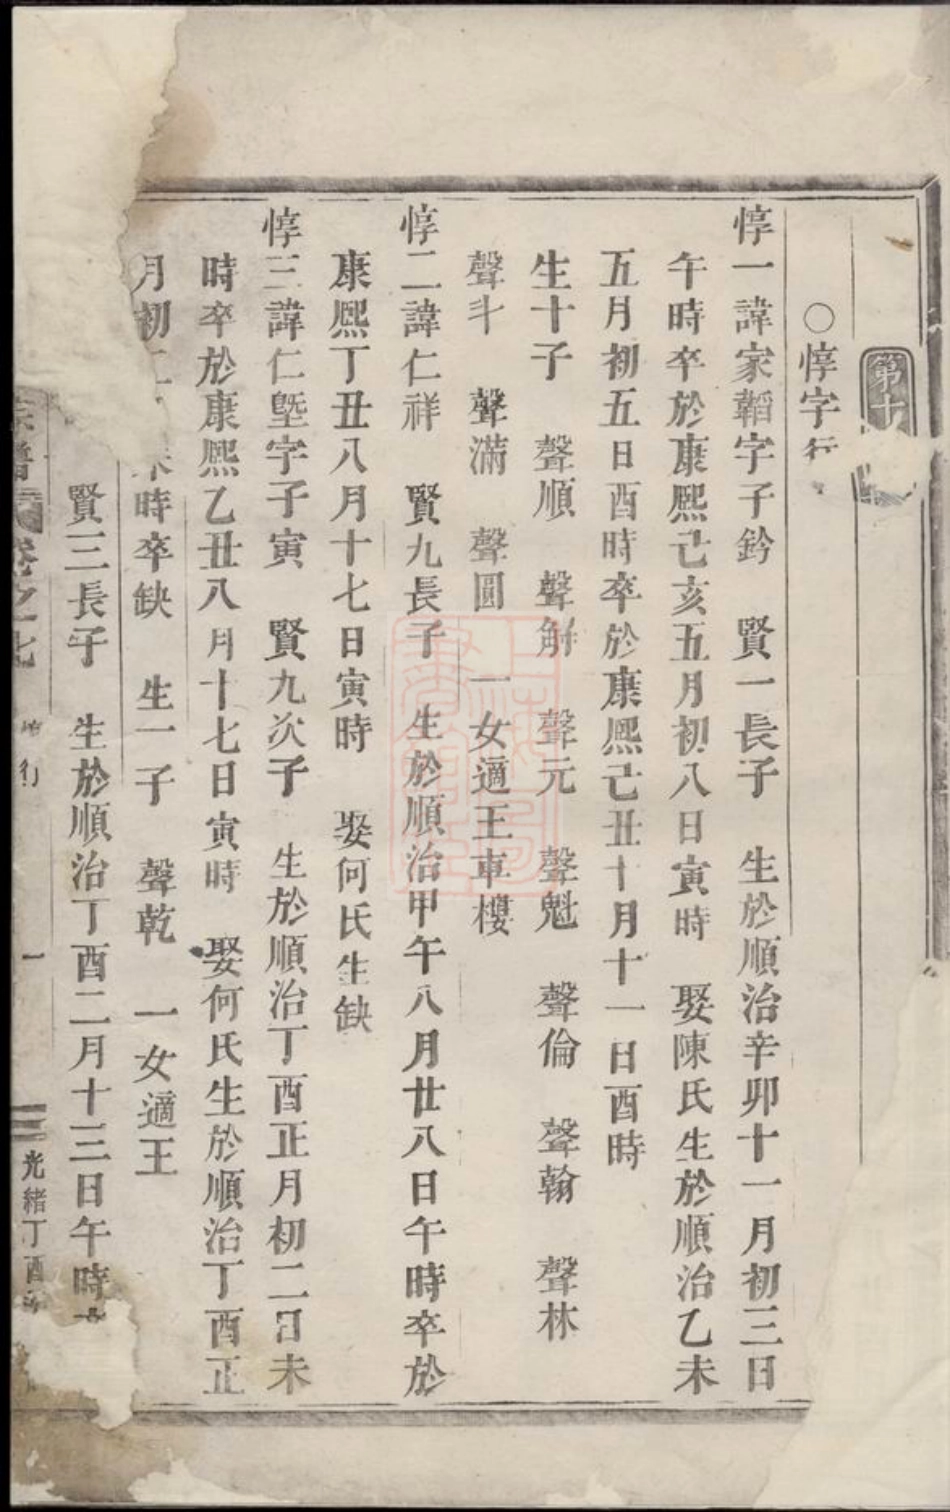 第十
○惇字行
惇一諱家韜字子鈐 賢一長子 生於順治辛卯十一月初三日
午時卒於康熙己亥五月初八日寅時 娶陳氏生於順治乙未
五月初五日酉時卒於康熙己丑十月十一日酉時
生十子 聲順 聲斛 聲元 聲魁 聲倫 聲翰 聲林
聲斗 聲滿 聲圓 一女適王車樓
惇二諱仁祥 賢九長子 生於順治甲午八月廿八日午時卒於
康熙丁丑八月十七日寅時 娶何氏生缺
惇三諱仁塈字子寅 賢九次子 生於順治丁酉正月初二日未
時卒於康熙乙丑八月十七日寅時 娶何氏生於順治丁酉正
月初二 未時卒缺 生一子 聲乾 一女適王
賢三長子 生於順治丁酉二月十三日午時
宗譜 卷之七 行 一 光緒丁酉